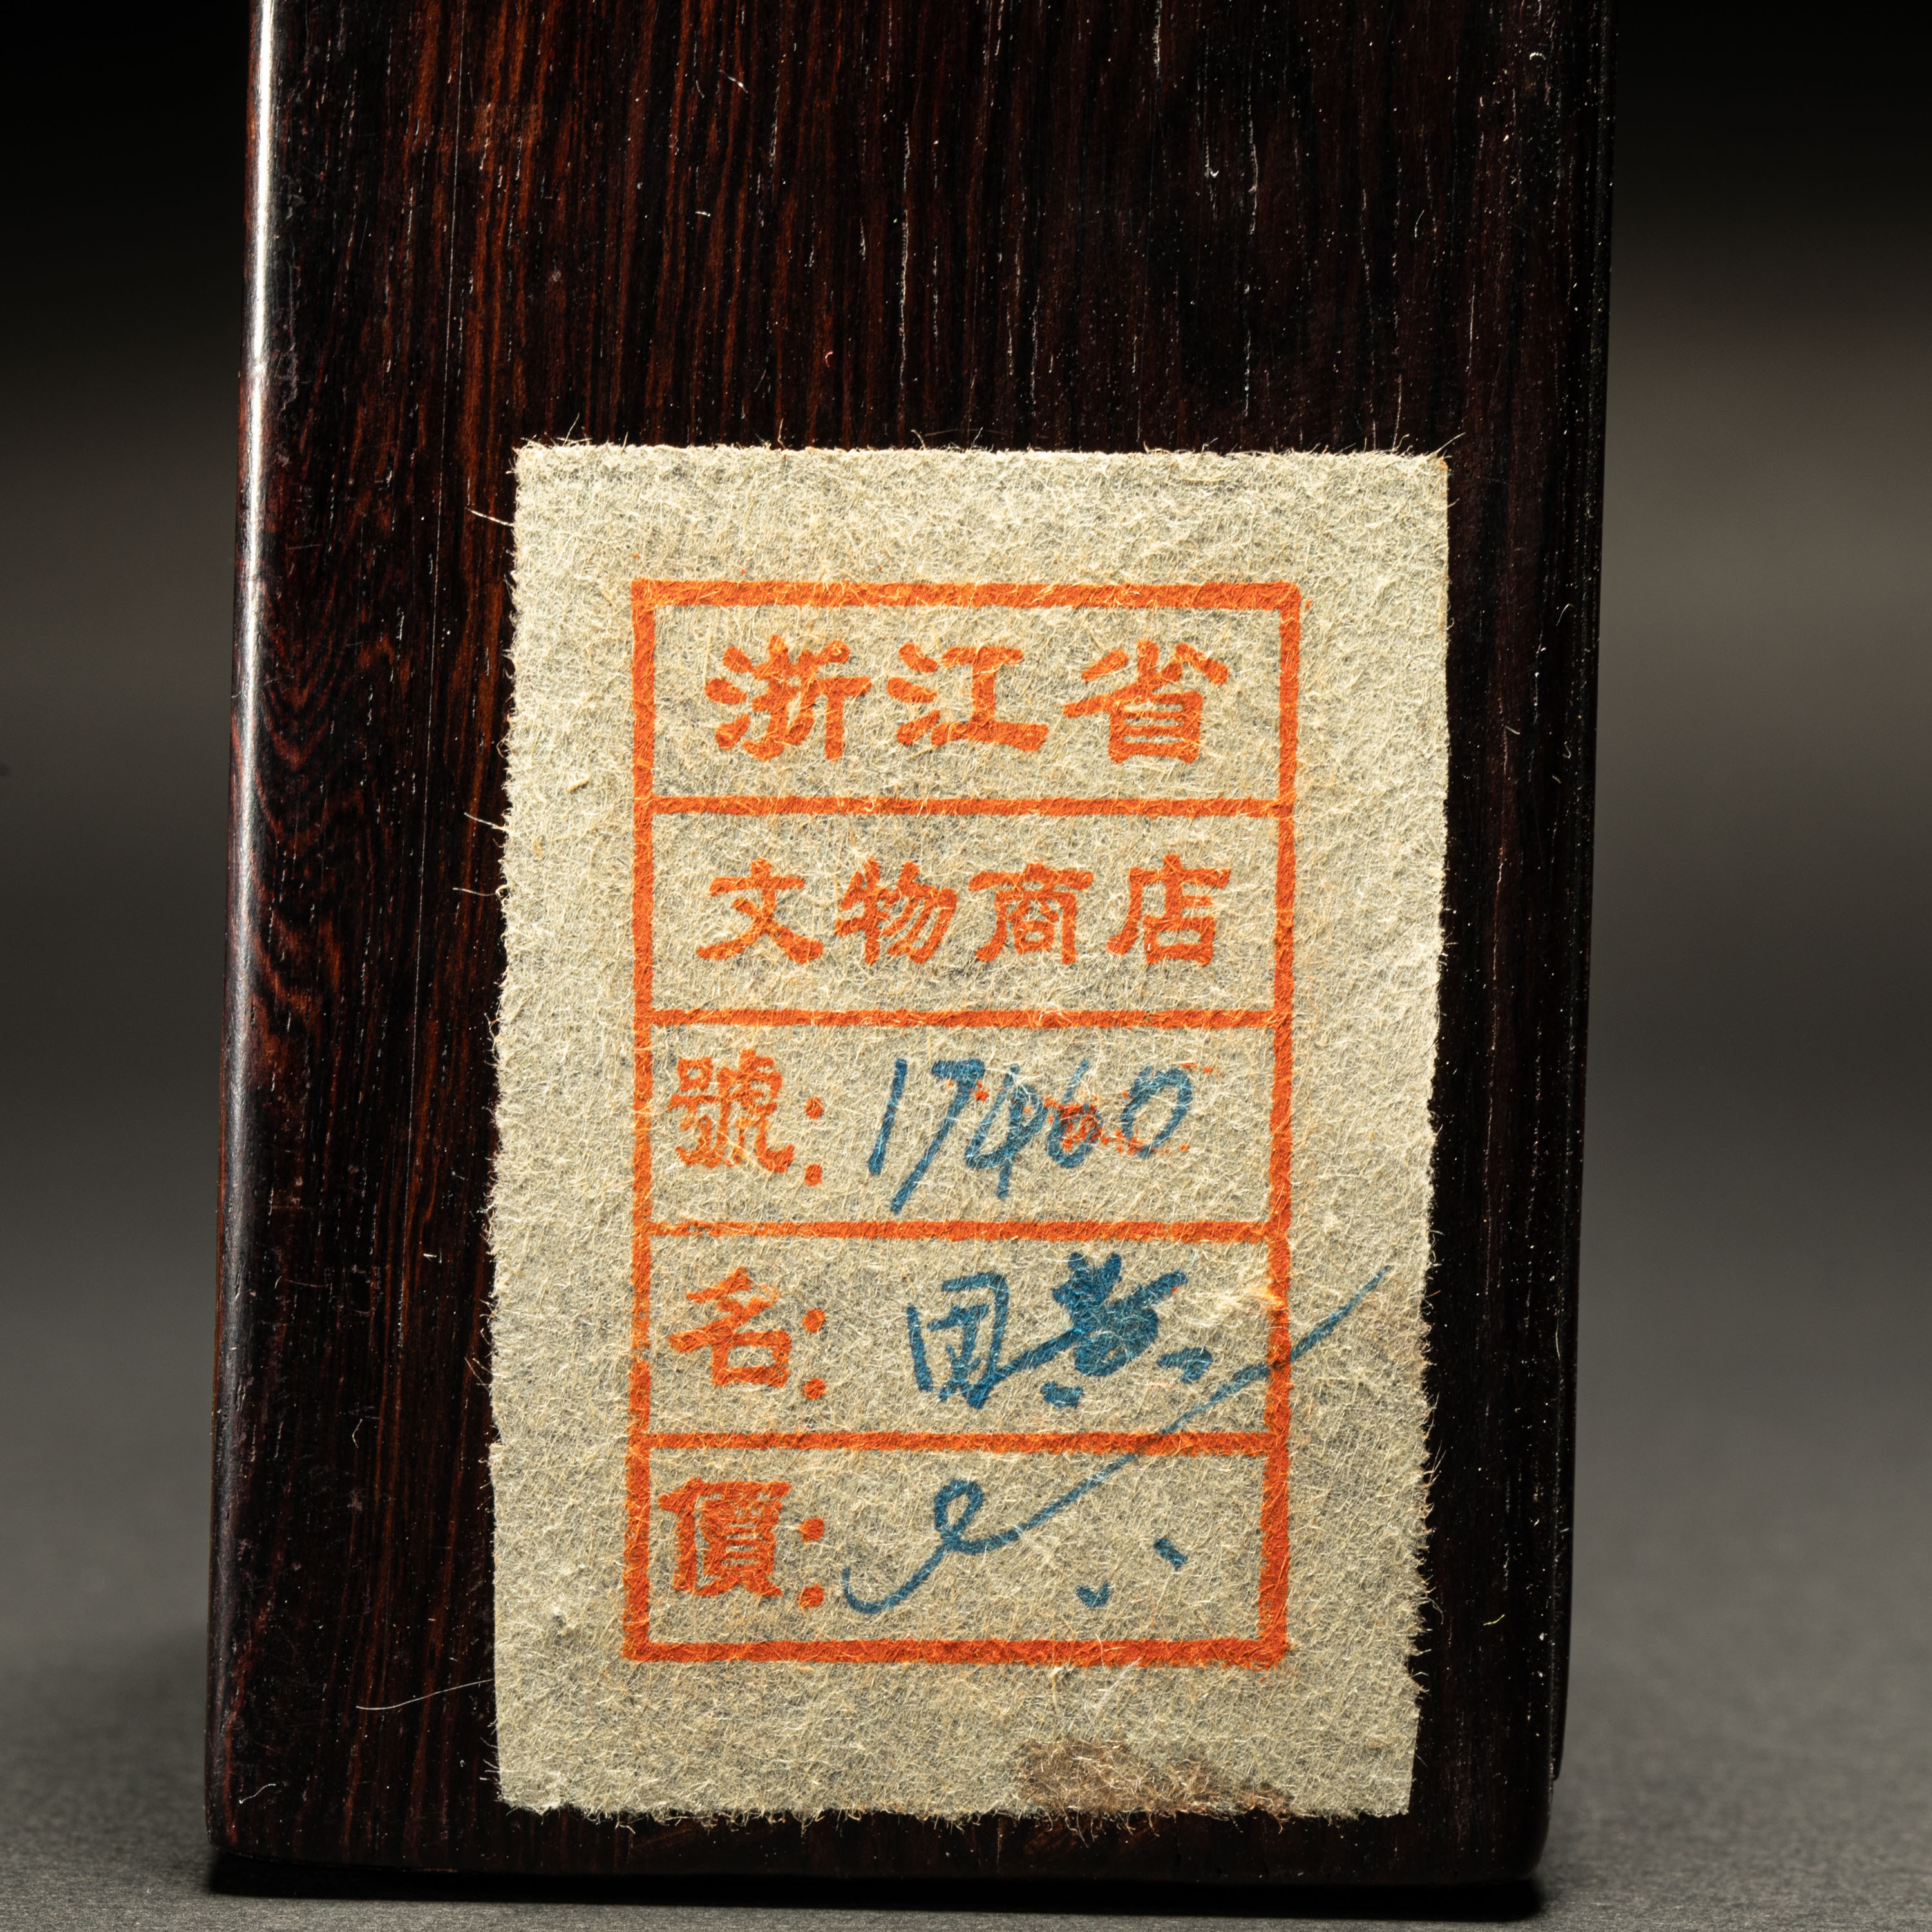 浙江省
文物商店
號：17460
名：田黄
價：